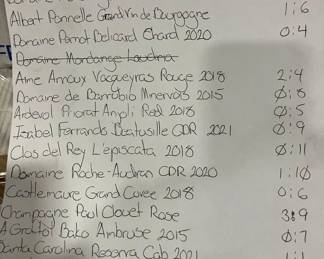 Albert Ponnelle Grand Vin de Bourgogne 1:6
Domaine Pernot Belicard Chard 2020 0:4
Domaine Mordange Loudina
Aime Arnoux Vacqueyras Rouge 2018 2:4
Domaine de Barroubio Minervois 2015 Ø:8
Ardevol Priorat Anjoli Red 2018 Ø:5
Isabel Ferrando Beatusille CDR 2021 Ø:9
Clos del Rey L'episcata 2018 Ø:11
Domaine Roche-Audran CDR 2020 1:1Ø
Castlemaure Grand Cuvee 2018 0:6
Champagne Paul Clouet Rose 3:9
A Grotol Bako Ambruse 2015 Ø:7
Santa Carolina Reserva Cab 2021 1:1